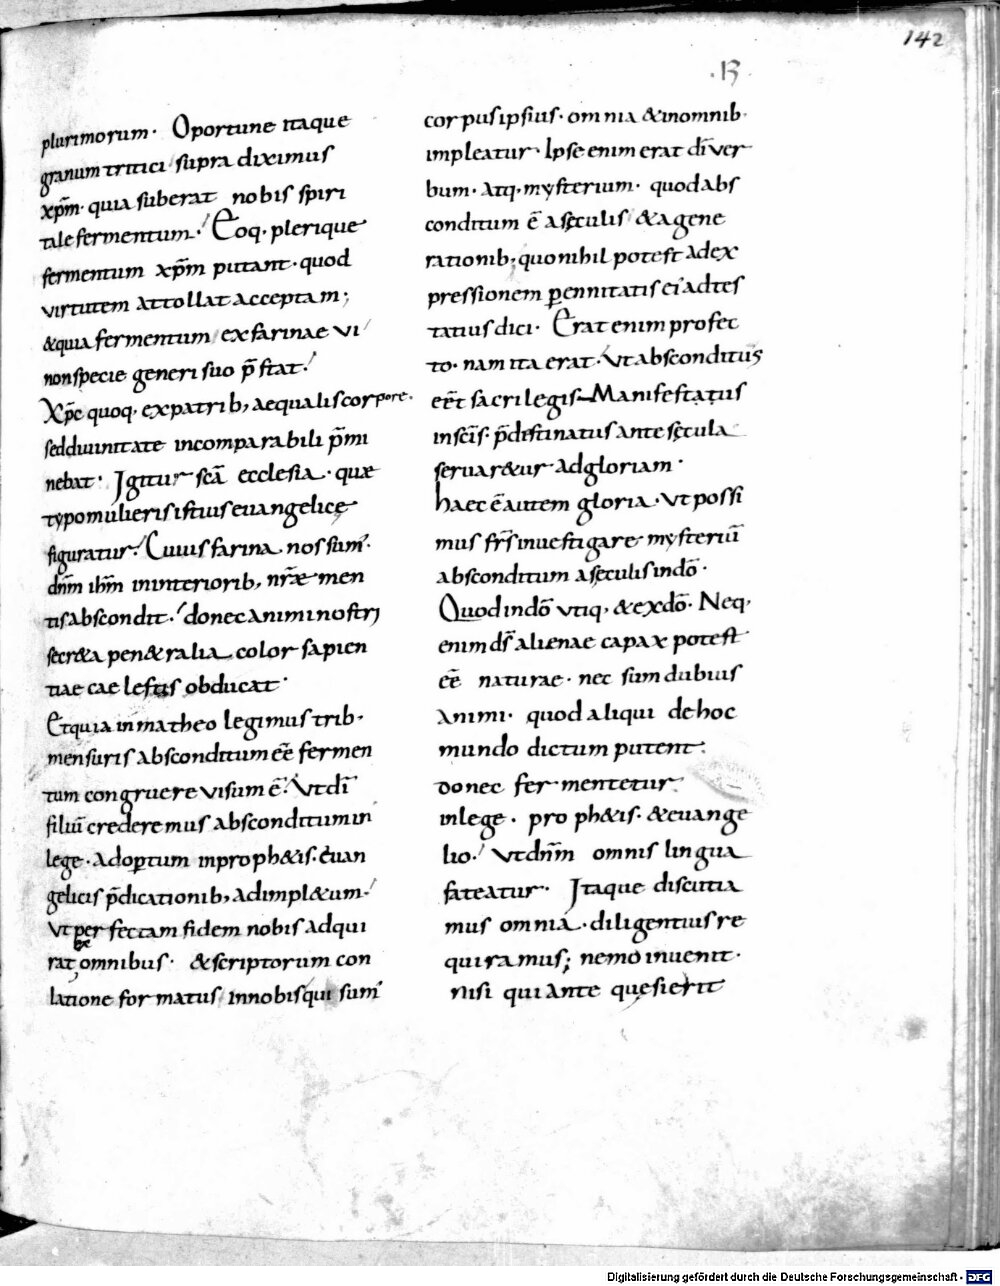 142
·B·
plurimorum· Oportune itaque
granum tritici supra diximus
xp̄m· quia suberat nobis spiri
tale fermentum· Eoq· plerique
fermentum xp̄m putant· quod
virtutem attollat acceptam;
&quia fermentum exfarinae vi
nonspecie generi suo p̄stat·
Xp̄c quoq· expatrib, aequaliscorpore·
seddiuinitate incomparabili p̄mi
nebat· Igitur scā ecclesia· quae
typomulieris istius euangelicę
figuratur· Cuius farina nos sum̄·
dn̄m ihm̄ ininteriorib, nr̄ae men
tisabscondit· donecanimi nostri
secr&a pen&ralia color sapien
tiae caelestis obducat·
Etquia inmatheo legimus trib·
mensuris absconditum eē fermen
tum congruere visum ē· Vtdī
filiū crederemus absconditumin
lege· adoptum inproph&is· euan
gelicis p̄dicationib, adimpl&um·
vt perfectam fidem nobis adqui
rat ex omnibus· &scriptorum con
latione formatus innobisqui sum̄
corpusipsius· omnia &inomnib·
impleatur· Ipse enim erat dī ver
bum· atq· mysterium· quodabs
conditum ē asęculis &agene
rationib; quonihil potest adex
pressionem perennitatis ei adtes
tatius dici· Erat enim profec
to· nam ita erat· Vt absconditus
eēt sacrilegis Manifestatus
inscīs· p̄destinatus ante sęcula
seruar&ur adgloriam·
haec ē autem gloria· Vt possi
mus fr̄s inuestigare mysteriū
absconditum asęculis indō·
Quod indō vtiq, &exdō· Neq,
enim ds̄ alienae capax potest
eē naturae· nec sum dubius
animi· quod aliqui dehoc
mundo dictum putent·
donec fermentetur
inlege· proph&is· &euange
lio· vtdn̄m omnis lingua
fateatur· Itaque discutia
mus omnia· diligentius re
quiramus; nemo inuenit·
nisi qui ante quęsierit
Digitalisierung gefördert durch die Deutsche Forschungsgemeinschaft - DFG